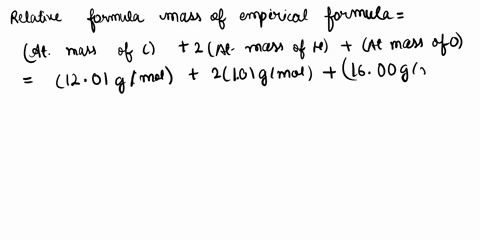 Relative formula mass of empirical formula=
(At. mass of C) + 2(At. mass of H) + (At mass of O)
= (12.01 g/mol) + 2(1.01 g/mol) + (16.00 g/